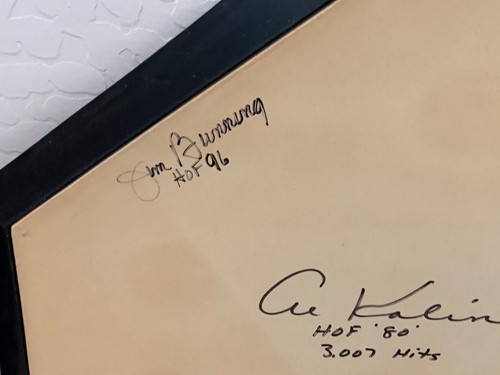 Jim Bunning
HOF 96
Al Kalin
HOF '80'
3,007 Hits